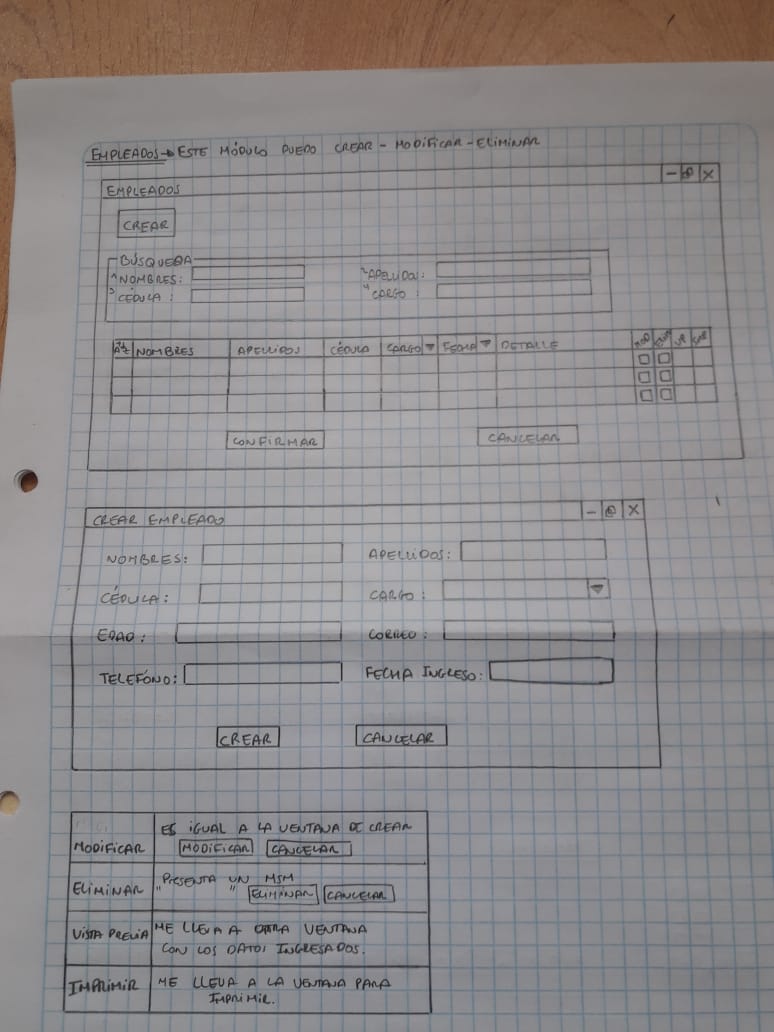 EMPLEADOS → ESTE MÓDULO PUEDO CREAR - MODIFICAR - ELIMINAR
EMPLEADOS
CREAR
BÚSQUEDA
1 NOMBRES: 2 APELLIDO:
3 CÉDULA: 4 CARGO:
NOMBRES APELLIDOS CÉDULA CARGO FECHA DETALLE MOD ELIM VP IMP
CONFIRMAR CANCELAR
CREAR EMPLEADO
NOMBRES: APELLIDOS:
CÉDULA: CARGO:
EDAD: CORREO:
TELEFÓNO: FECHA INGRESO:
CREAR CANCELAR
MODIFICAR
ES IGUAL A LA VENTANA DE CREAR
MODIFICAR CANCELAR
ELIMINAR
"PRESENTA UN MSM
" ELIMINAR CANCELAR
VISTA PREVIA
ME LLEVA A OTRA VENTANA
CON LOS DATOS INGRESADOS.
IMPRIMIR
ME LLEVA A LA VENTANA PARA
IMPRIMIR.